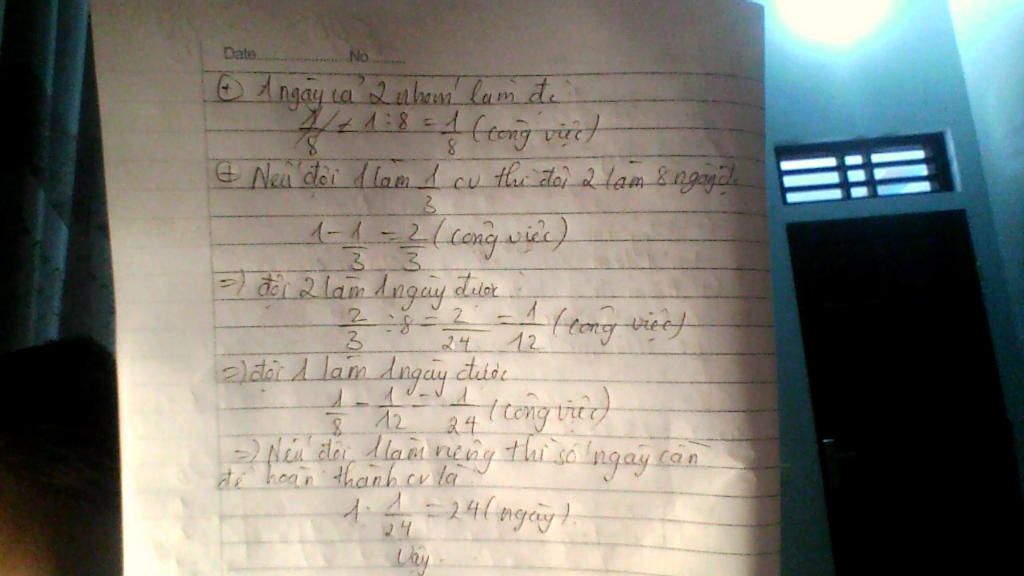 Date................ No.......
+ 1 ngày cả 2 nhóm làm đc
1 : 8 = 1/8 (công việc)
+ Nếu đội 1 làm 1/3 cv thì đội 2 làm 8 ngày đc
1 - 1/3 = 2/3 (công việc)
=> đội 2 làm 1 ngày được
2/3 : 8 = 2/24 = 1/12 (công việc)
=> đội 1 làm 1 ngày được
1/8 - 1/12 = 1/24 (công việc)
=> Nếu đội 1 làm riêng thì số ngày cần
để hoàn thành cv là
1 : 1/24 = 24 (ngày)
Vậy